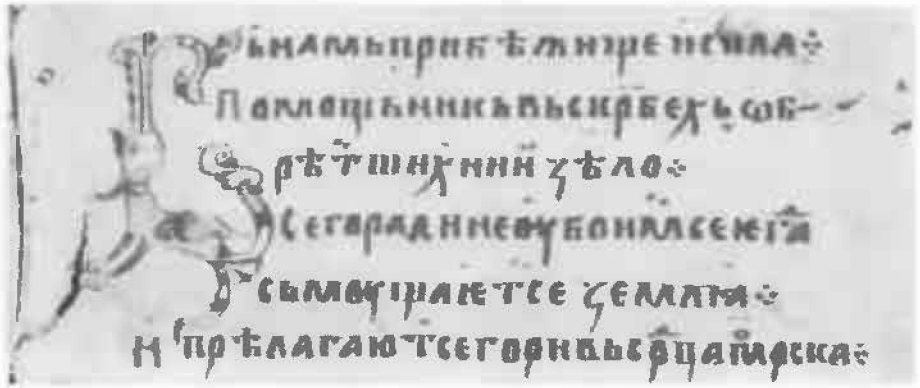 Бьнамьприбѣжище исила÷
Помощьникьвьскрбехьѡб–
рѣтшихнии ꙁѣло÷
Сегорадинеоубоимсеѥгⷣа
сьмоущаѥтсе ꙁемлꙗ÷
И прѣлагаютсегоривьсрⷣцаморска÷